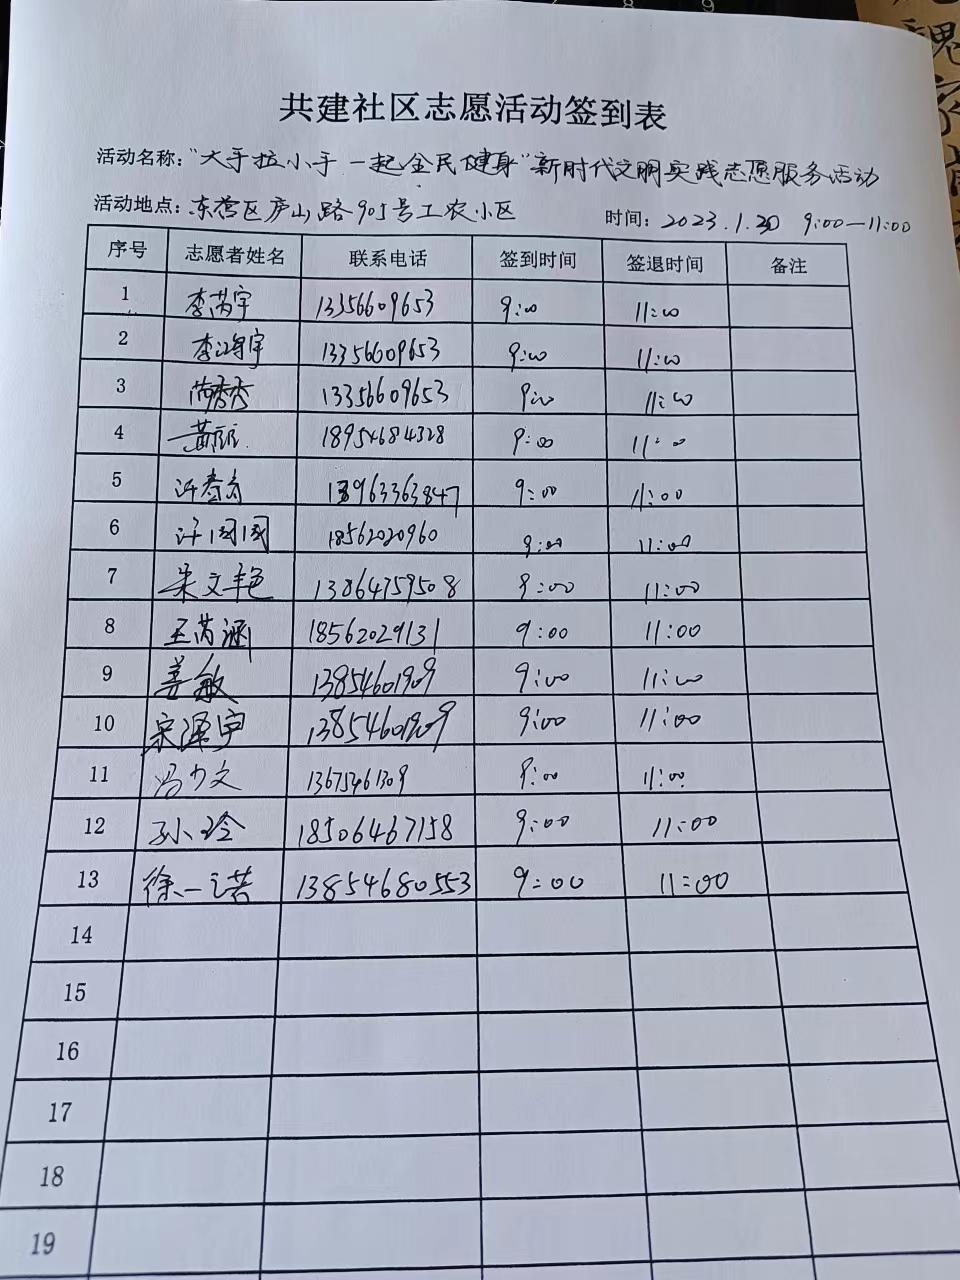 8 9
共建社区志愿活动签到表
活动名称："大手拉小手 一起全民健身"新时代文明实践志愿服务活动
活动地点：东营区庐山路905号工农小区 时间：2023.1.30 9:00—11:00
序号 志愿者姓名 联系电话 签到时间 签退时间 备注
1 李芮宇 13356609653 9:00 11:00
2 李海宇 13356609653 9:00 11:00
3 13356609653 9:00 11:00
4 黄丽 18954684328 9:00 11:00
5 13963363847 9:00 11:00
6 许团团 18562020960 9:00 11:00
7 朱文艳 13864759508 9:00 11:00
8 王芮涵 18562029131 9:00 11:00
9 姜敏 13854601909 9:00 11:00
10 宋泽宇 13854601909 9:00 11:00
11 冯力文 13675461309 9:00 11:00
12 孙玲 18506467158 9:00 11:00
13 徐一诺 13854680553 9:00 11:00
14
15
16
17
18
19